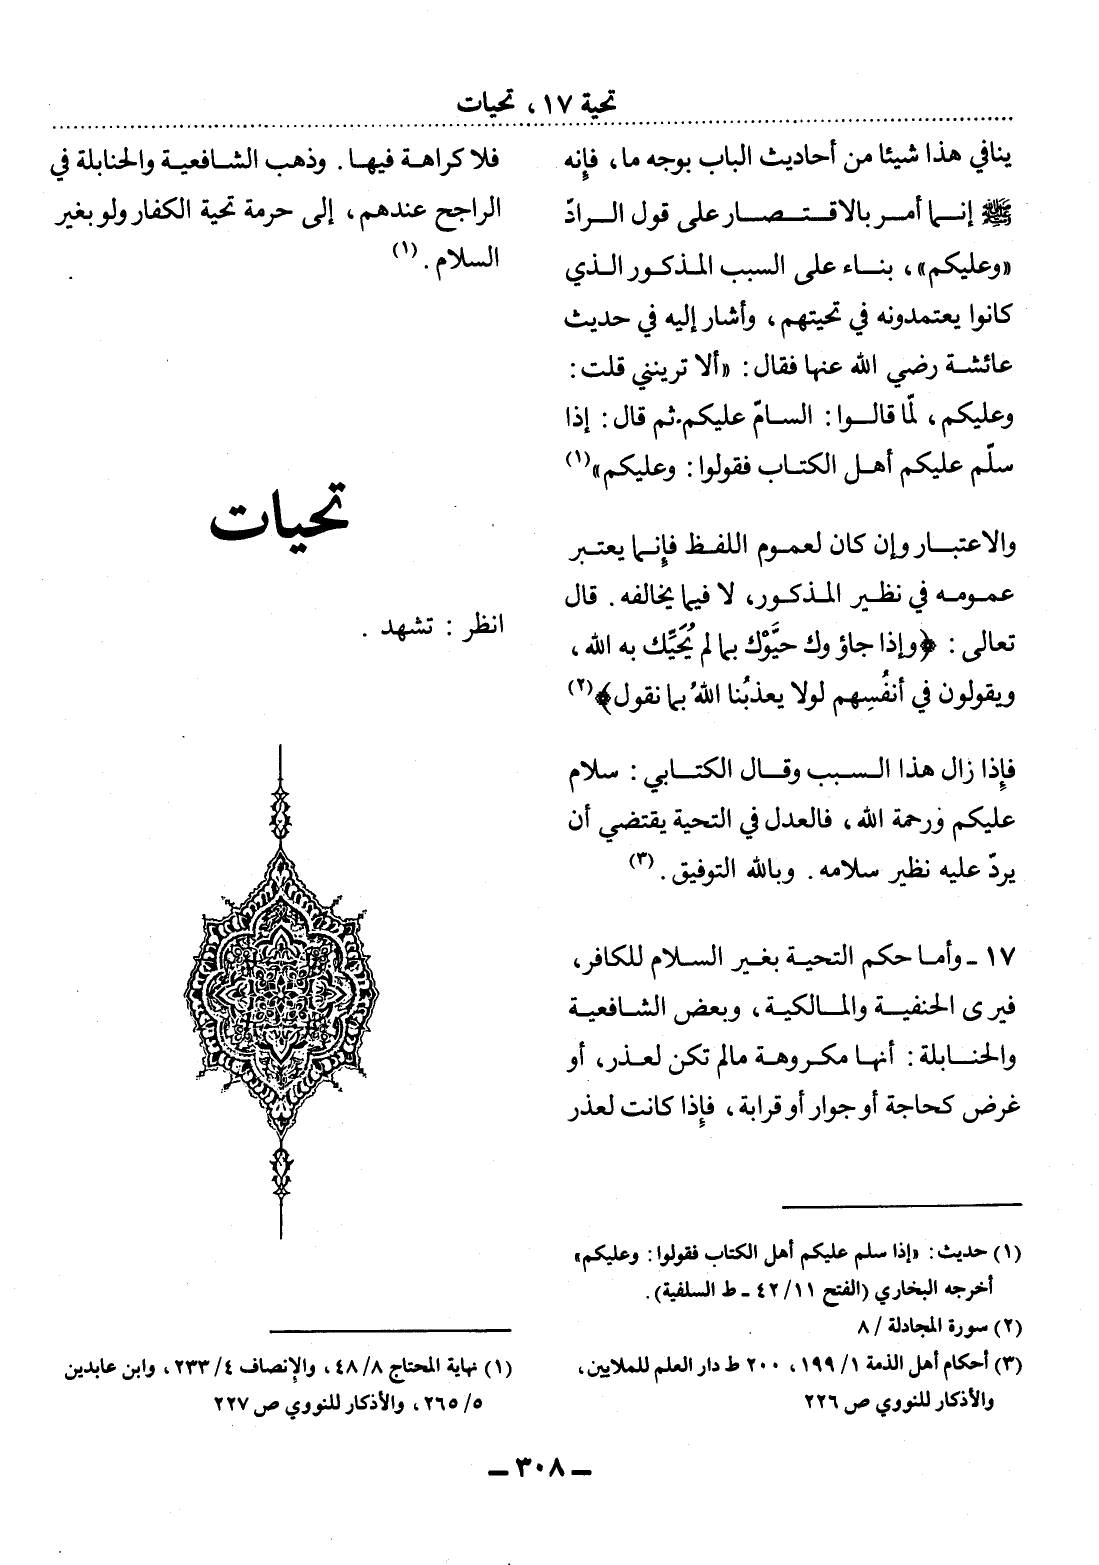 تحية ١٧ ، تحيات
ينافي هذا شيئا من أحاديث الباب بوجه ما، فإنه
ﷺ إنـما أمـر بالاقـتـصـار على قول الـرادّ
«وعليكم»، بنـاء على السبب المـذكـور الـذي
كانوا يعتمدونه في تحيتهم، وأشار إليه في حديث
عائشـة رضي الله عنها فقال: «ألا ترينني قلت:
وعليكم، لمّا قالـوا: السـامّ عليكم. ثم قال: إذا
سلّم عليكم أهـل الكتـاب فقولوا: وعليكم»(١)
والاعتبـار وإن كان لعمـوم اللفـظ فإنـما يعتبـر
عمـومـه في نظـير المـذكـور، لا فيما يخالفه. قال
تعالى: ﴿وإذا جاؤوك حيَّوْك بما لم يُحَيِّك به الله،
ويقولون في أنفُسِهم لولا يعذبُنا اللهُ بما نقول﴾(٢)
فإذا زال هذا الـسبب وقـال الكتـابي: سلام
عليكم ورحمة الله، فالعدل في التحية يقتضي أن
يردّ عليه نظير سلامه. وبالله التوفيق.(٣)
١٧ ـ وأمـا حكم التحية بغـير السـلام للكافر،
فيرى الحنفيـة والمـالكية، وبعض الشـافعيـة
والحنـابلة: أنهـا مكـروهـة مالم تكن لعـذر، أو
غرض كحاجة أو جوار أو قرابة، فإذا كانت لعذر
(١) حديث: «إذا سلم عليكم أهل الكتاب فقولوا: وعليكم»
أخرجه البخاري (الفتح ١١/ ٤٢ ـ ط السلفية).
(٢) سورة المجادلة / ٨
(٣) أحكام أهل الذمة ١/ ١٩٩، ٢٠٠ ط دار العلم للملايين،
والأذكار للنووي ص ٢٢٦
فلا كراهـة فيهـا. وذهب الشـافعيـة والحنابلة في
الراجح عندهم، إلى حرمة تحية الكفار ولو بغير
السلام.(١)
تحيات
انظر: تشهد.
(١) نهاية المحتاج ٨/ ٤٨، والإنصاف ٤/ ٢٣٣، وابن عابدين
٥/ ٢٦٥، والأذكار للنووي ص ٢٢٧
ـ ٣٠٨ ـ